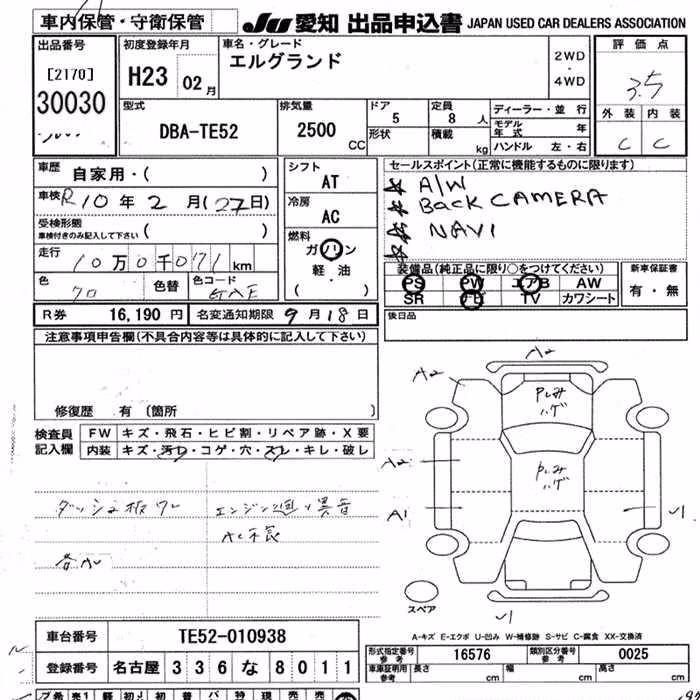 車内保管・守衛保管
JU 愛知 出品申込書 JAPAN USED CAR DEALERS ASSOCIATION
出品番号
[2170]
30030
初度登録年月
H23 02月
車名・グレード
エルグランド
2WD
・
4WD
評価点
3.5
外装 内装
C C
型式
DBA-TE52
排気量
2500
CC
ドア
5
形状
定員
8 人
積載
kg
ディーラー・並行
モデル年式 年
ハンドル 左・右
車歴
自家用・( )
車検 R10年2月(27日)
受検形態
車検付きのみ記入して下さい ( )
走行
10万0千071km
色
70
色替
色コード
GAE
シフト
AT
冷房
AC
燃料
ガソリン
軽・油
( )
セールスポイント(正常に機能するものに限ります)
A/W
Back CAMERA
NAVI
装備品(純正品に限り○をつけてください)
PS PW エアB AW
SR ナビ TV カワシート
新車保証書
有・無
R券 16,190円 名変通知期限 9月18日
後日品
注意事項申告欄(不具合内容等は具体的に記入して下さい)
修復歴 有〔箇所 〕
検査員
記入欄
FW キズ・飛石・ヒビ割・リペア跡・X要
内装 キズ・汚れ・コゲ・穴・スレ・キレ・破レ
エンジン廻り異音
AC不良
A2
A2
A2
A1
スペア
A-キズ E-エクボ U-凹み W-補修跡 S-サビ C-腐食 XX-交換済
車台番号 TE52-010938
登録番号 名古屋 336 な 8011
形式指定番号
参考
16576
類別区分番号
参考
0025
車庫証明用
参考
長さ cm 幅 cm 高さ cm